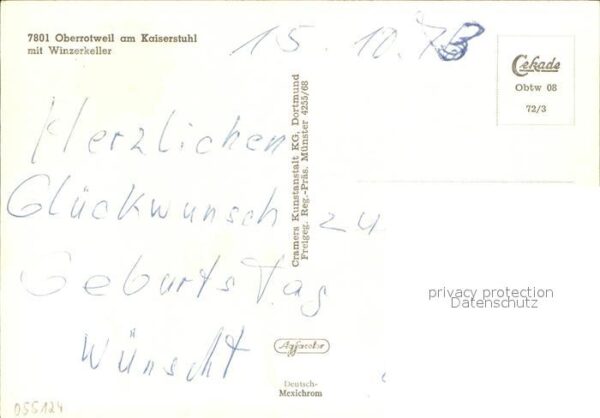 7801 Oberrotweil am Kaiserstuhl
mit Winzerkeller
15. 10. 73
Cekade
Obtw 08
72/3
Herzlichen
Glückwunsch zu
Geburts Tag
wünscht
Cramers Kunstanstalt KG. Dortmund
Freigeg. Reg.-Präs. Münster 4255/68
privacy protection
Datenschutz
Agfacolor
Deutsch-
Mexichrom
055124